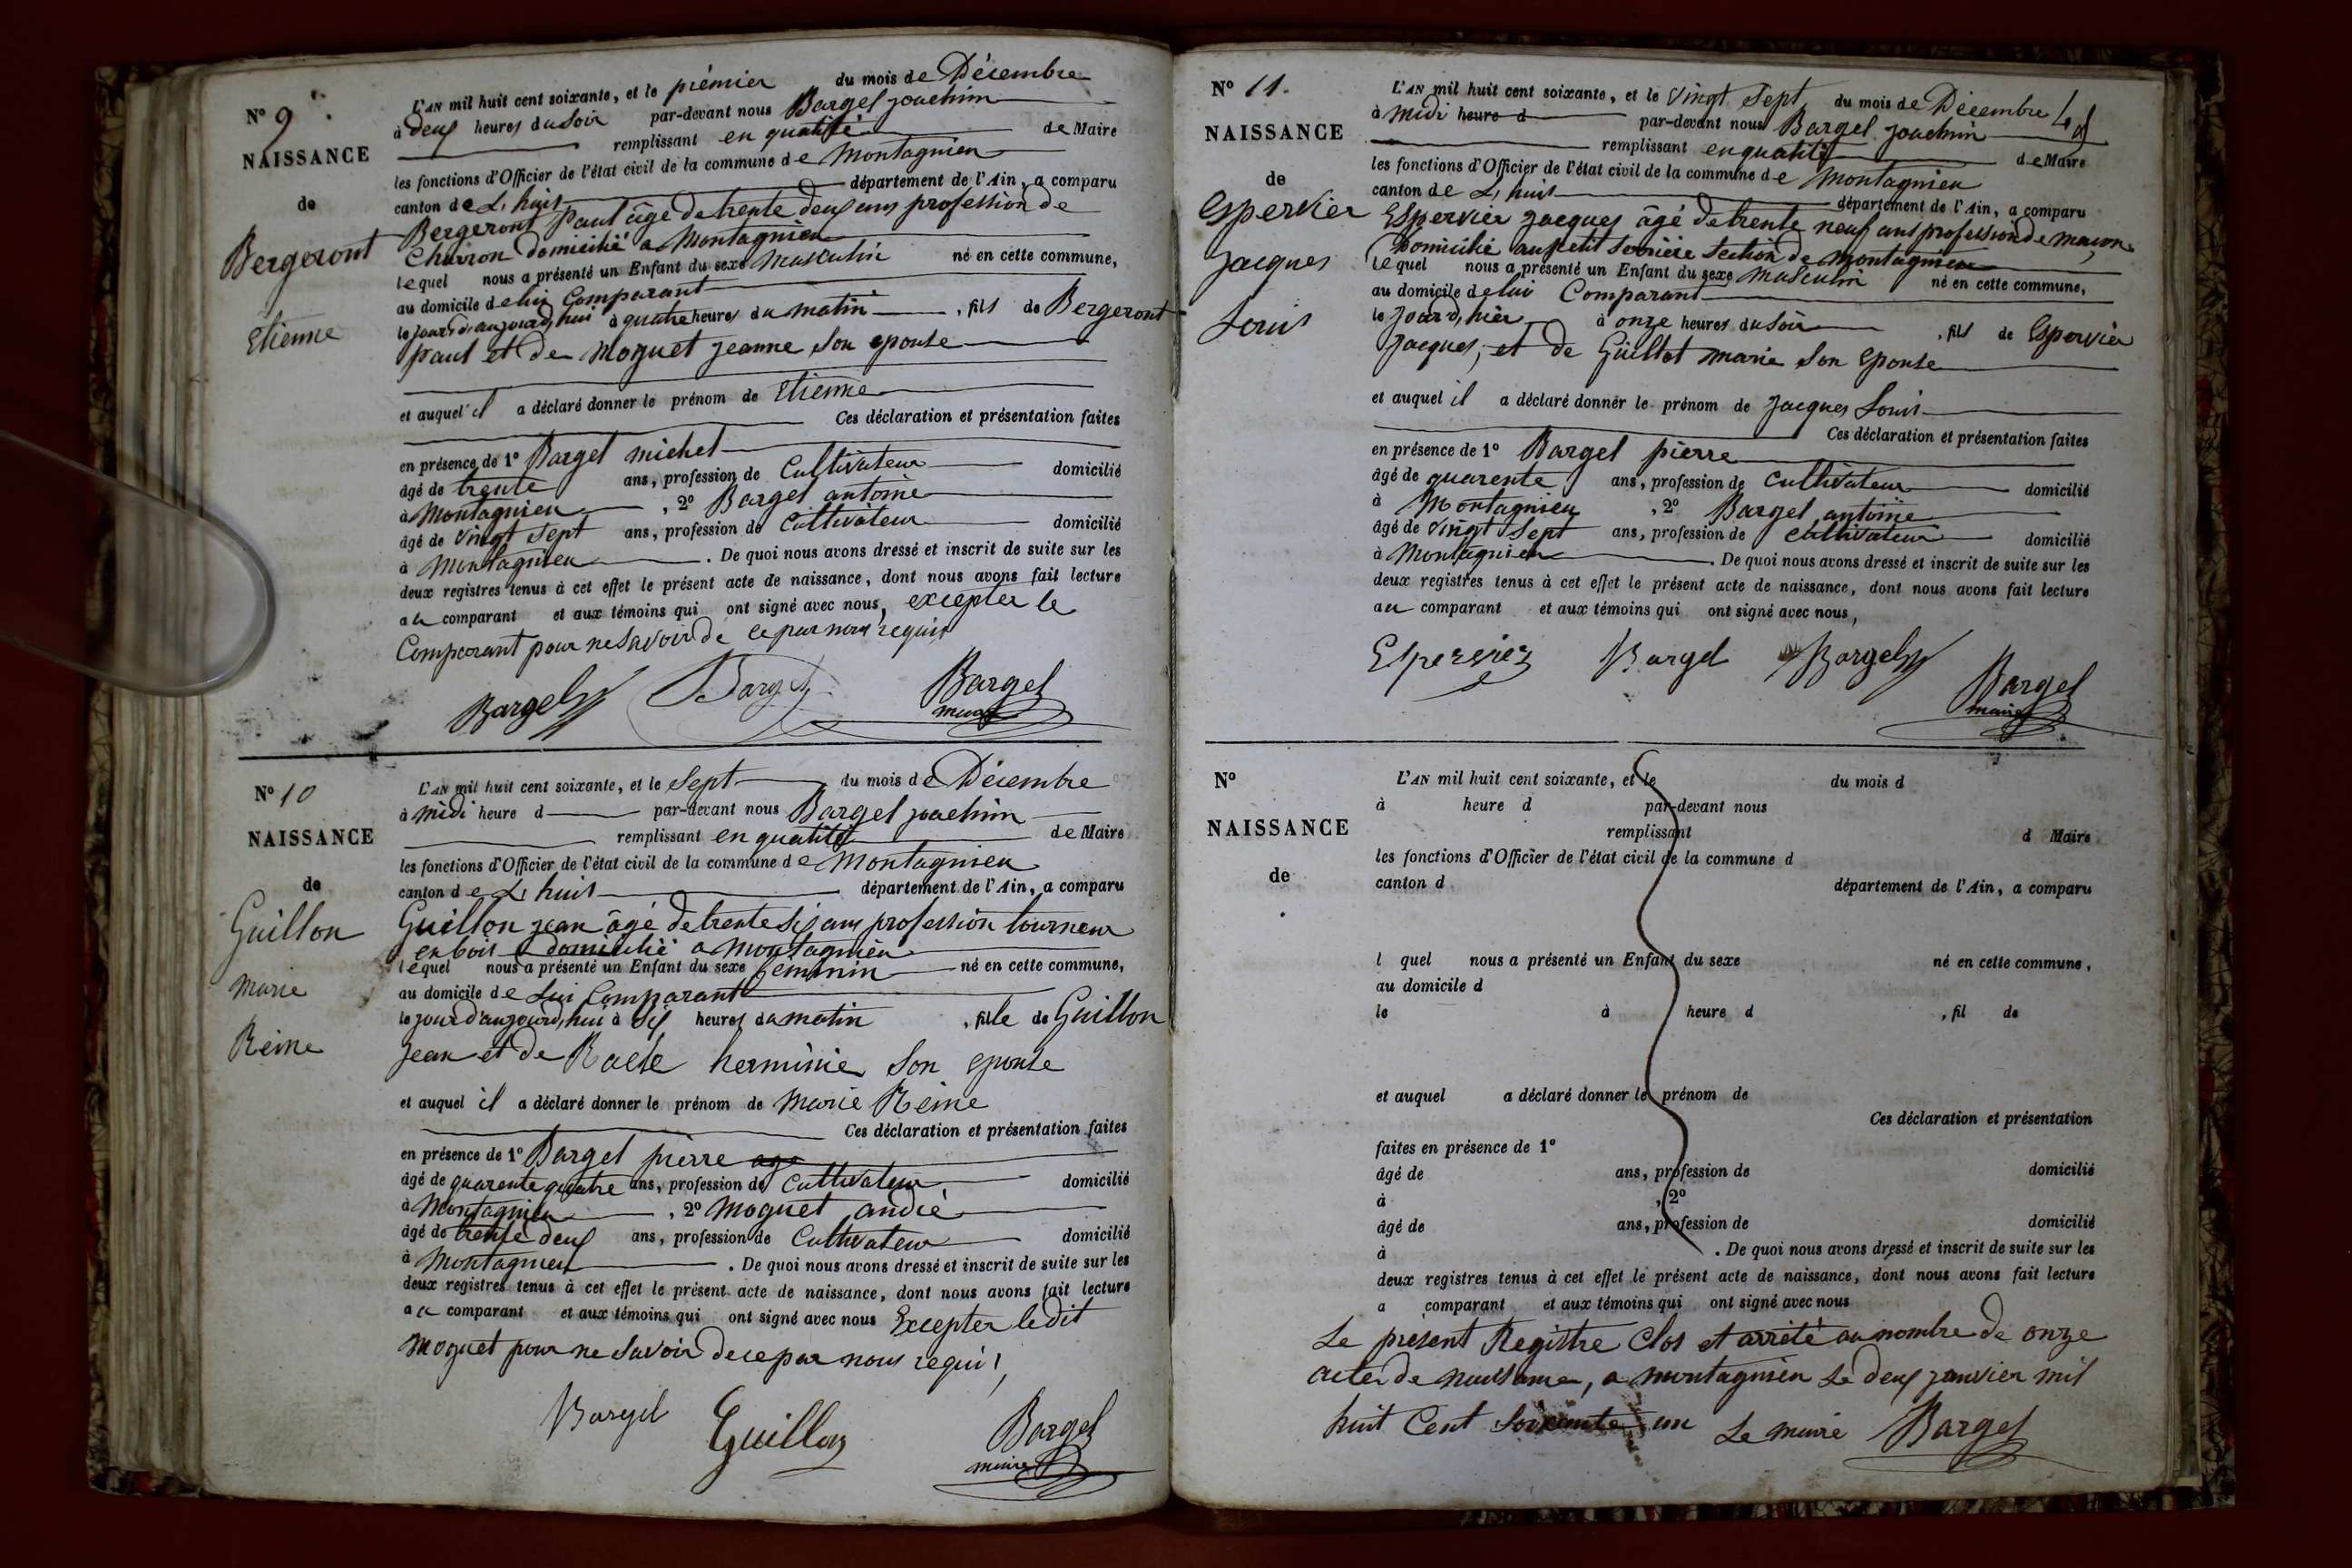 N° 9
NAISSANCE
de
Bergeront
Etienne
L'AN mil huit cent soixante, et le prémier du mois de Décembre
à deux heures du Soir par-devant nous Bargel joachim
remplissant en qualité de Maire
les fonctions d'Officier de l'état civil de la commune de Montagnieu
canton de L'huis département de l'Ain, a comparu
Bergeront Paul âgé de trente deux ans profession de
Charron domicilié a Montagnieu
lequel nous a présenté un Enfant du sexe Masculin né en cette commune,
au domicile de lui Comparant
le jour d'aujourd'hui à quatre heures du matin, fils de Bergeront
paul et de Moguet jeanne Son epouse
et auquel il a déclaré donner le prénom de Etienne
Ces déclaration et présentation faites
en présence de 1° Bargel michel
âgé de trente ans, profession de Cultivateur domicilié
à Montagnieu, 2° Bargel antoine
âgé de vingt sept ans, profession de Cultivateur domicilié
à Montagnieu. De quoi nous avons dressé et inscrit de suite sur les
deux registres tenus à cet effet le présent acte de naissance, dont nous avons fait lecture
au comparant et aux témoins qui ont signé avec nous, excepter le
Comparant pour ne Savoir de ce par nous requis
Bargel Bargel Bargel
maire
N° 10
NAISSANCE
de
Guillon
Marie
Reine
L'AN mil huit cent soixante, et le Sept du mois de Décembre
à midi heure d par-devant nous Bargel joachim
remplissant en qualité de Maire
les fonctions d'Officier de l'état civil de la commune de Montagnieu
canton de L'huis département de l'Ain, a comparu
Guillon jean âgé de trente six ans profession tourneur
en bois domicilié a Montagnieu
lequel nous a présenté un Enfant du sexe feminin né en cette commune,
au domicile de Lui Comparant
le jour d'aujourd'hui à six heures du matin, fille de Guillon
jean et de herminie Son epouse
et auquel il a déclaré donner le prénom de Marie Reine
Ces déclaration et présentation faites
en présence de 1° Bargel pierre age
âgé de quarente quatre ans, profession de Cultivateur domicilié
à Montagnieu, 2° Moguet andré
âgé de trente deux ans, profession de Cultivateur domicilié
à Montagnieu. De quoi nous avons dressé et inscrit de suite sur les
deux registres tenus à cet effet le présent acte de naissance, dont nous avons fait lecture
au comparant et aux témoins qui ont signé avec nous Excepter le dit
Moguet pour ne Savoir de ce par nous requis
Bargel Guillon Bargel
maire
N° 11.
NAISSANCE
de
Espervier
Jacques
Louis
L'AN mil huit cent soixante, et le Vingt Sept du mois de Décembre
à midi heure d par-devant nous Bargel Joachim
remplissant en qualité de Maire
les fonctions d'Officier de l'état civil de la commune de Montagnieu
canton de L'huis département de l'Ain, a comparu
Espervier Jacques âgé de trente neuf ans profession de macon
Domicilié au petit Section de Montagnieu,
lequel nous a présenté un Enfant du sexe masculin né en cette commune,
au domicile de lui Comparant
le Jour d'hier à onze heures du Soir, fils de Espervier
Jacques, et de Guillot marie Son Epouse
et auquel il a déclaré donner le prénom de Jacques Louis
Ces déclaration et présentation faites
en présence de 1° Bargel pierre
âgé de quarente ans, profession de Cultivateur domicilié
à Montagnieu, 2° Bargel antoine
âgé de Vingt Sept ans, profession de Cultivateur domicilié
à Montagnieu. De quoi nous avons dressé et inscrit de suite sur les
deux registres tenus à cet effet le présent acte de naissance, dont nous avons fait lecture
au comparant et aux témoins qui ont signé avec nous,
Espervier Bargel Bargel Bargel
maire
N°
NAISSANCE
de
L'AN mil huit cent soixante, et le du mois d
à heure d par-devant nous
remplissant d Maire
les fonctions d'Officier de l'état civil de la commune d
canton d département de l'Ain, a comparu
l quel nous a présenté un Enfant du sexe né en cette commune,
au domicile d
le à heure d, fil de
et auquel a déclaré donner le prénom de
Ces déclaration et présentation
faites en présence de 1°
âgé de ans, profession de domicilié
à, 2°
âgé de ans, profession de domicilié
à. De quoi nous avons dressé et inscrit de suite sur les
deux registres tenus à cet effet le présent acte de naissance, dont nous avons fait lecture
a comparant et aux témoins qui ont signé avec nous
Le présent Registre Clos et arrêté au nombre de onze
actes de naissance, a montagnieu Le deux janvier mil
huit Cent Soixante un Le maire Bargel